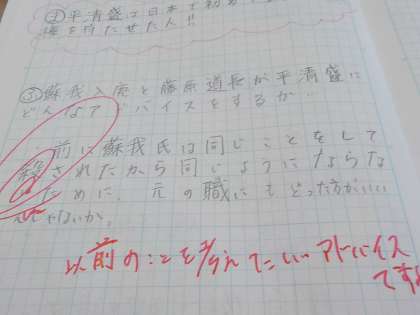 ②平清盛は日本で初め
権を持たせた人!!
③蘇我入鹿と藤原道長が平清盛に
どんなアドバイスをするか
前に蘇我氏は同じことをして
殺されたから同じようにならな
ために、元の職にもどった方がいい
んじゃないか。
以前のことを考えたいいアドバイス
です